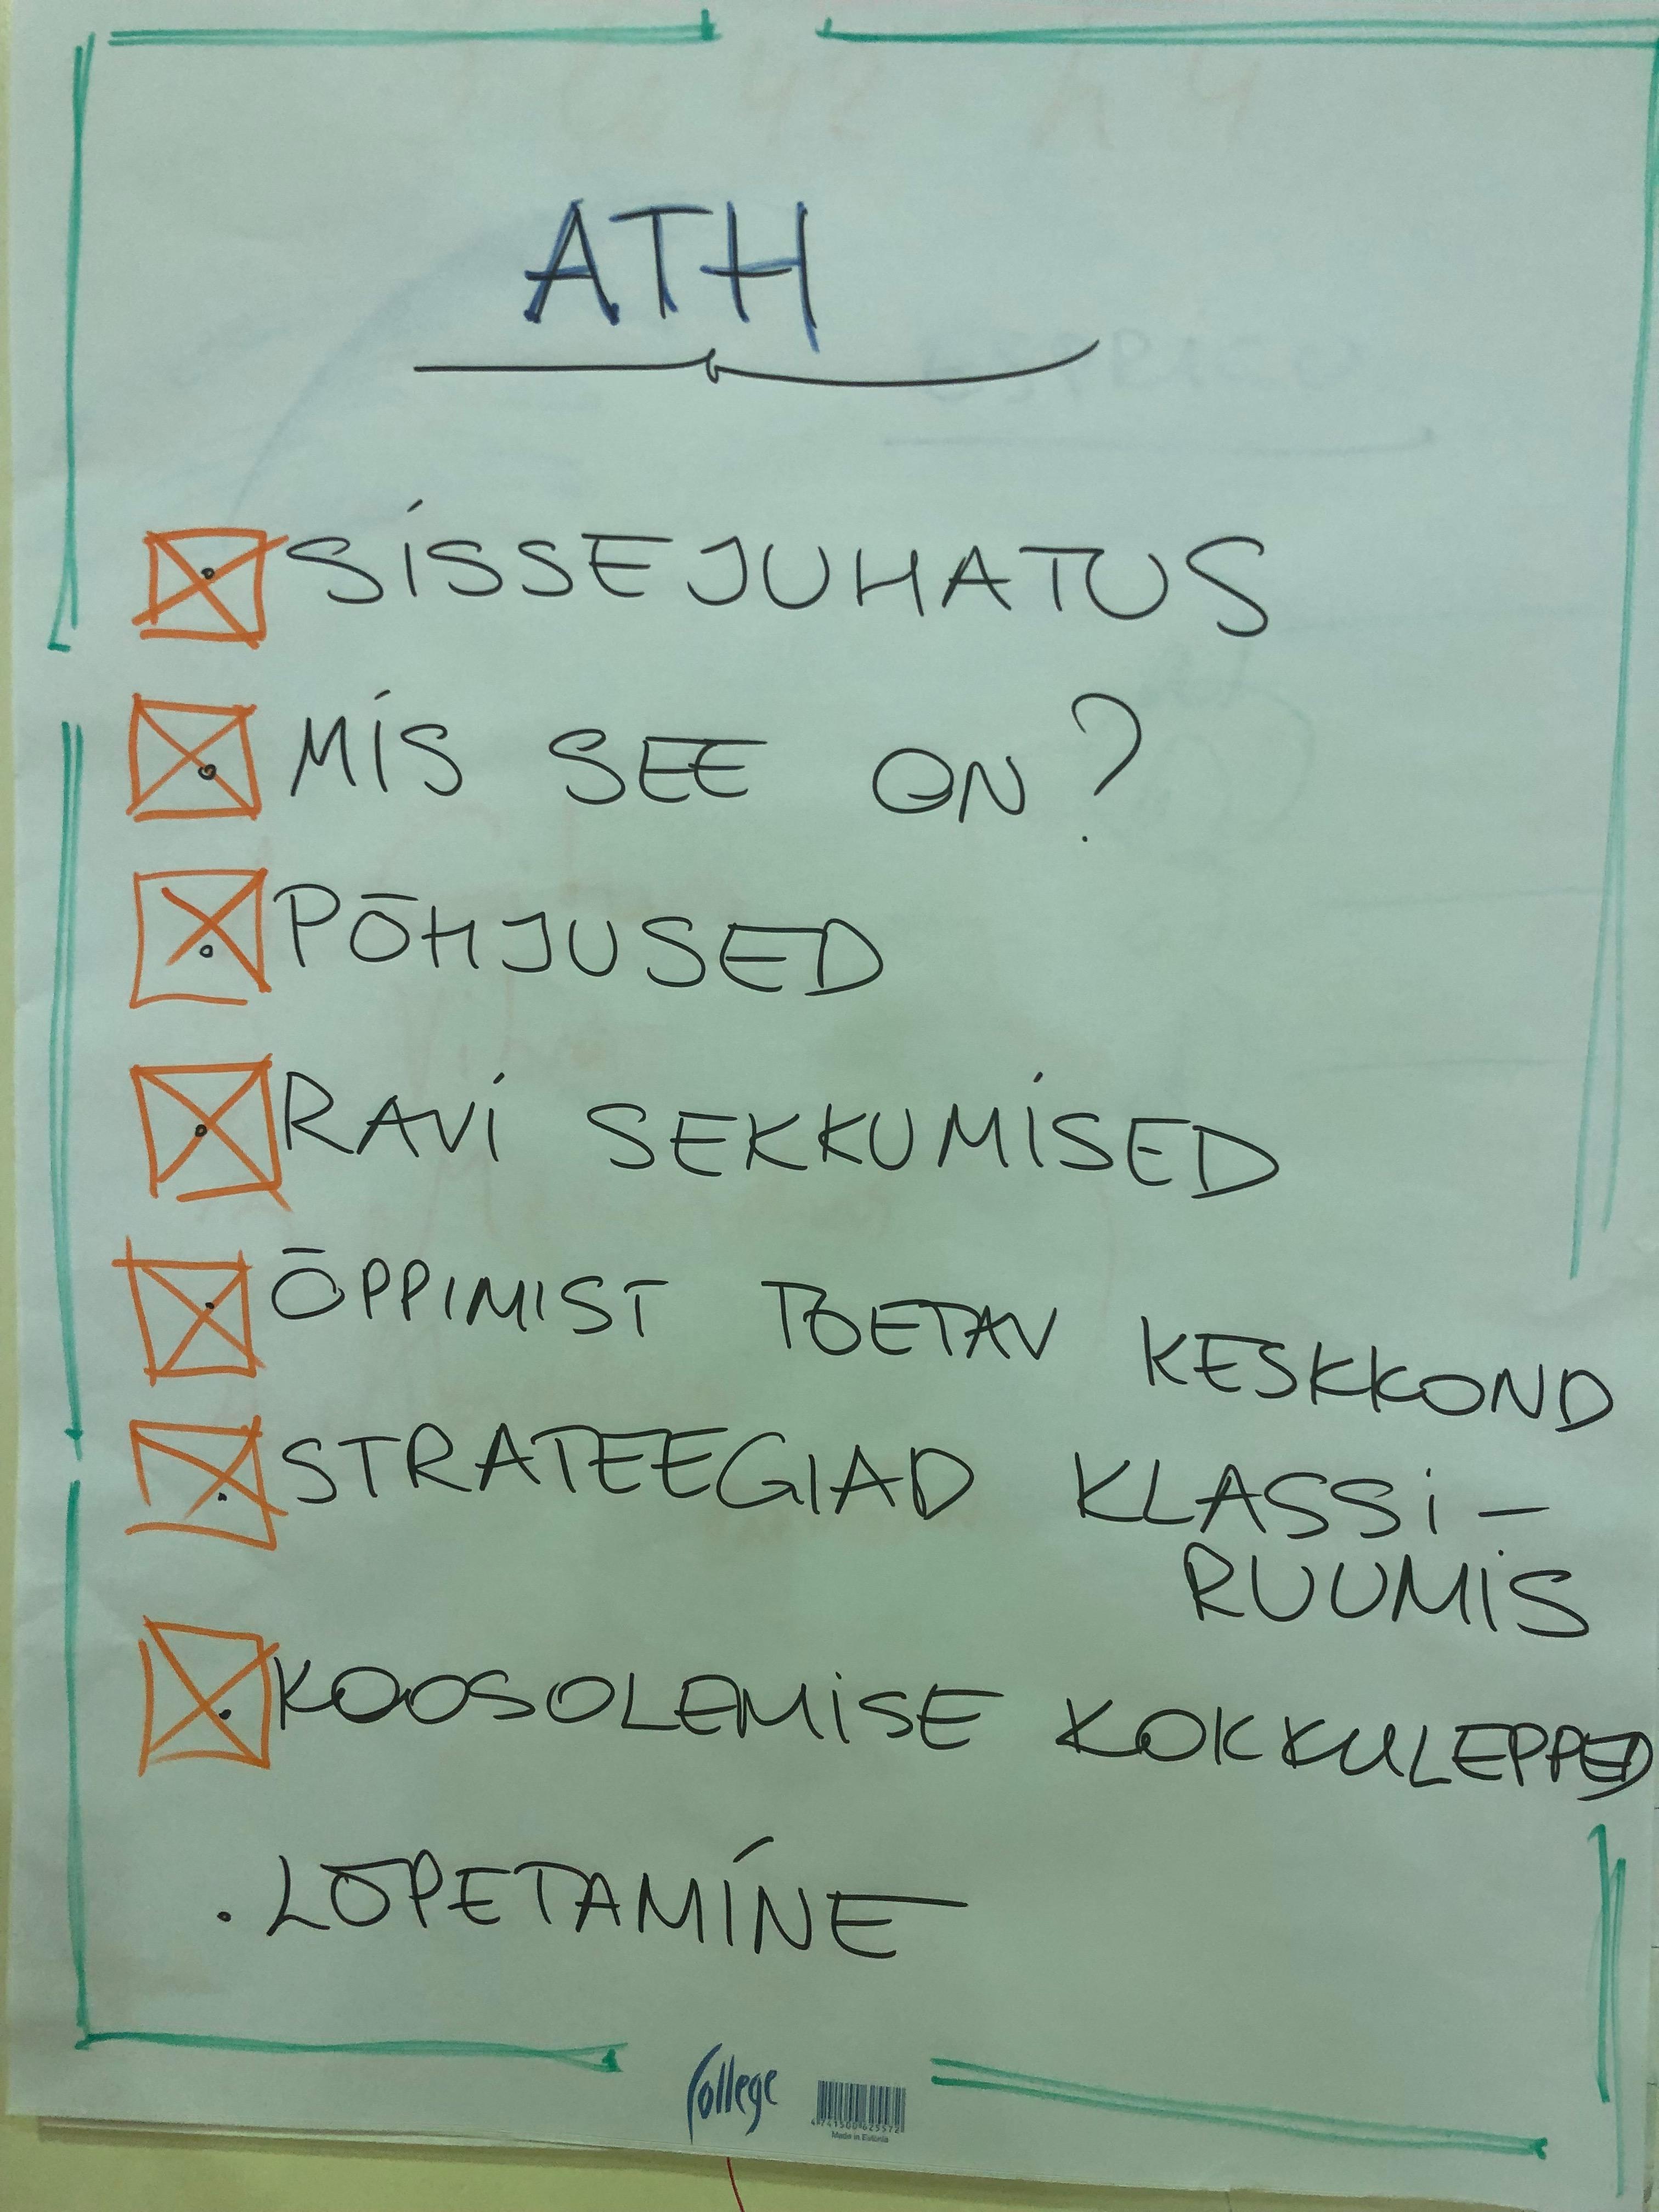 ATH
SISSEJUHATUS
MIS SEE ON?
PÕHJUSED
RAVI SEKKUMISED
ÕPPIMIST TOETAV KESKKOND
STRATEEGIAD KLASSI-
RUUMIS
KOOSOLEMISE KOKKULEPPED
. LÕPETAMINE
College
4741500625572
Made in Estonia